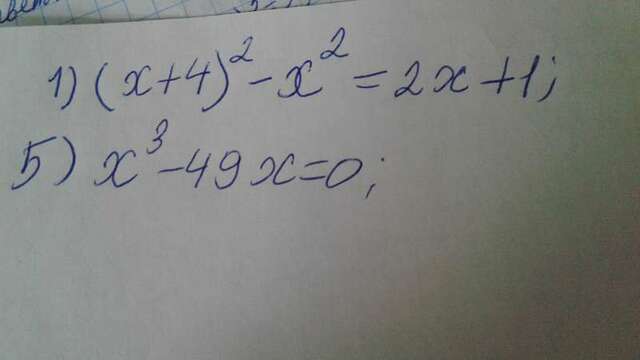 1) (x+4)² - x² = 2x+1;
5) x³ - 49x = 0;